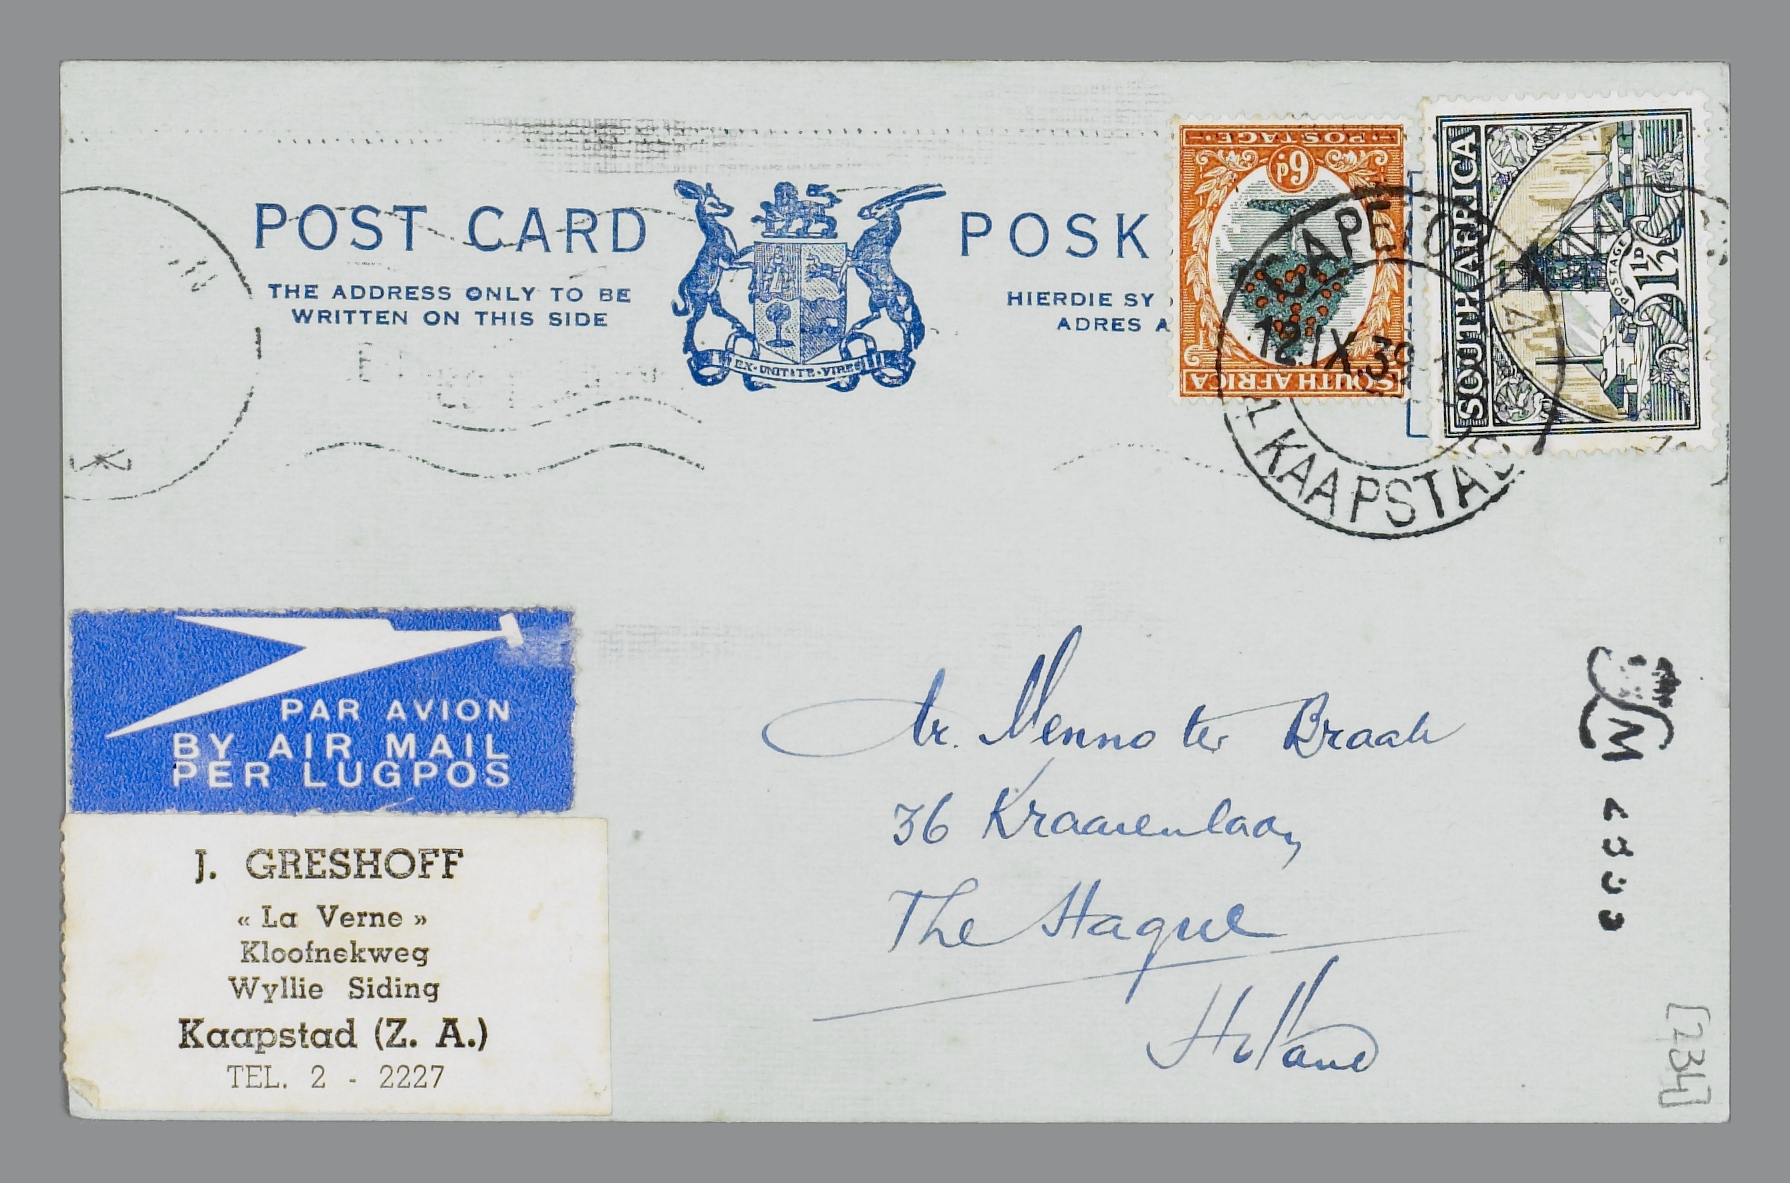 POST CARD
THE ADDRESS ONLY TO BE
WRITTEN ON THIS SIDE
EX·UNITATE·VIRES
POSK
HIERDIE SY
ADRES A
POSTAGE
6d
SOUTH AFRICA
SOUTH AFRICA
POSTAGE
1½D
1½
CAPETOWN
12.IX.39
KAAPSTAD
PAR AVION
BY AIR MAIL
PER LUGPOS
J. GRESHOFF
« La Verne »
Kloofnekweg
Wyllie Siding
Kaapstad (Z. A.)
TEL. 2 - 2227
Dr. Menno ter Braak
36 Kraaienlaan
The Hague
Holland
[234]